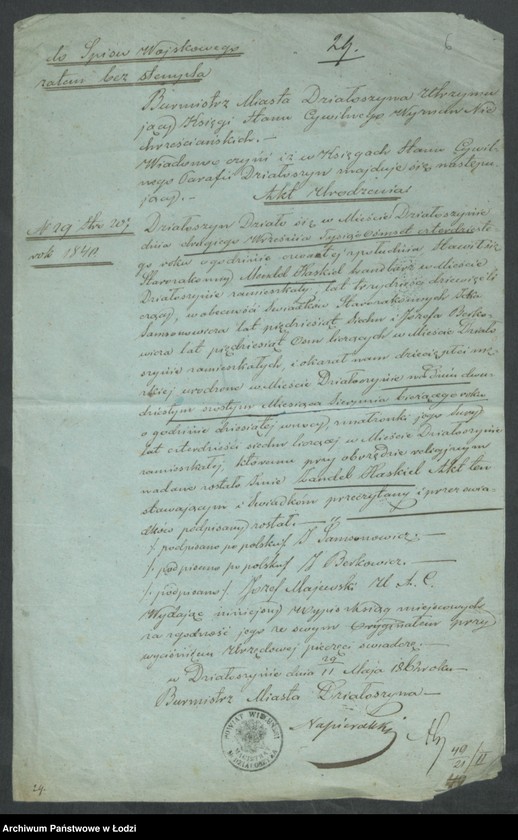 do Spisu Wojskowego
zatem bez stempla
29.
6
Burmistrz Miasta Działoszyna Utrzymu
jący Księgi Stanu Cywilnego Wyznań Nie
chrześciańskich.—
Wiadomo czyni iż w Księgach Stanu Cywil
nego Parafii Działoszyn znajduje się następu
jący.—
Akt Urodzenia
N 29
rok 1840
Działoszyn Działo się w Mieście Działoszynie
dnia drugiego Września Tysiąc ośmset czterdzieste
go roku o godzinie czwartej z południa Stawił się
Starozakonny Mendel Haskiel handlarz w Mieście
Działoszynie zamieszkały, lat trzydzieści dziewięć li
czący, w obecności Świadków Starozakonnych Icka
Samsonowicza lat pięćdziesiąt siedm i Józefa Beśko-
wicza lat pięćdziesiąt ośm liczących w Mieście Działo
szynie zamieszkałych, i okazał nam dziecię płci mę
skiej urodzone w Mieście Działoszynie na dniu dwu-
dziestym szóstym Miesiąca Sierpnia bieżącego roku
o godzinie dziesiątej w nocy, z małżonki jego
lat czterdzieści siedm liczącej w Mieście Działoszynie
zamieszkałej, któremu przy obrzędzie religijnym
nadane zostało Imie Haskiel Akt ten
stawającym i świadkom przeczytany i przez świa-
dków podpisany został.—
/: podpisano po polsku :/ I Samsonowicz.—
/: podpisano po polsku :/ J Beśkowicz.—
/: podpisano :/ Józef Majewski U. A. C.
Wydając niniejszy Wypis z ksiąg miejscowych
za zgodność jego ze swym Oryginałem przy
wyciśnięciu Urzędowej pieczęci świadczę.
w Działoszynie dnia 29/11 Maja roku—
Burmistrz Miasta Działoszyna—
Napieralski
POWIAT WIELUŃSKI
MAGISTRAT
M. DZIAŁOSZYNA
40
21 / II
29.
Archiwum Państwowe w Łodzi